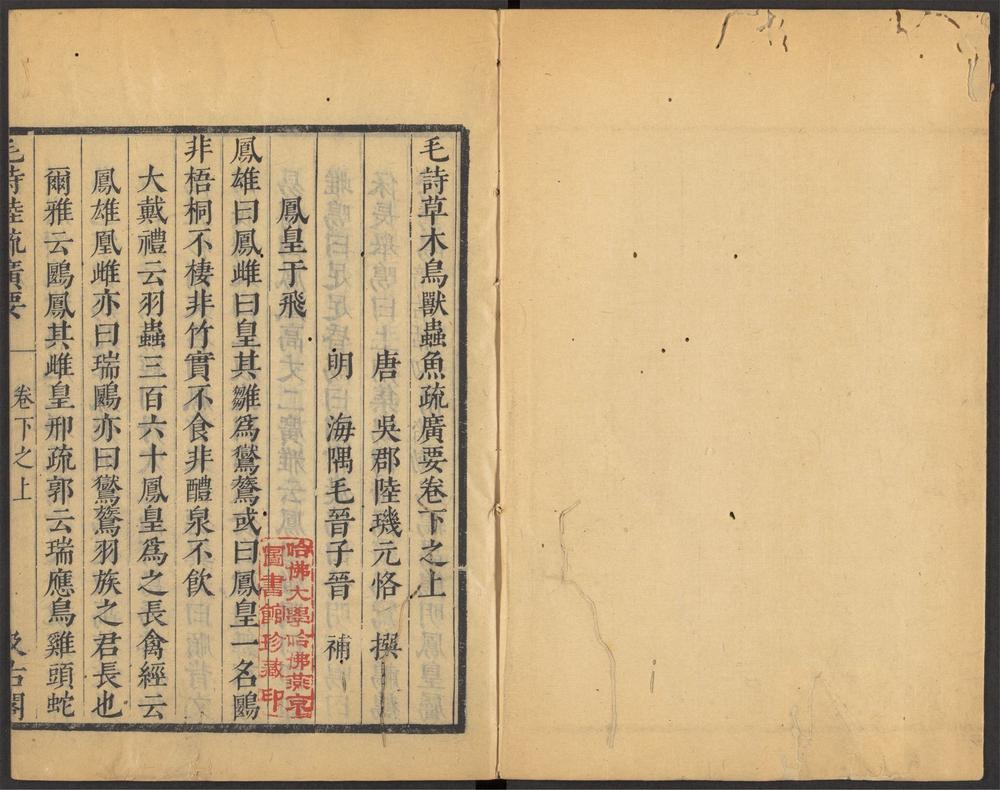 毛詩草木鳥獸蟲魚疏廣要卷下之上
唐 吳郡陸璣元恪 撰
明 海隅毛晉子晉 補
鳳皇于飛
鳳雄曰鳳雌曰皇其雛爲鸑鷟或曰鳳皇一名鶠
非梧桐不棲非竹實不食非醴泉不飲
大戴禮云羽蟲三百六十鳳皇爲之長禽經云
鳳雄凰雌亦曰瑞鶠亦曰鸑鷟羽族之君長也
爾雅云鶠鳳其雌皇邢疏郭云瑞應鳥雞頭蛇
毛詩陸疏廣要 卷下之上 汲古閣
哈佛大學哈佛燕京
圖書館珍藏印